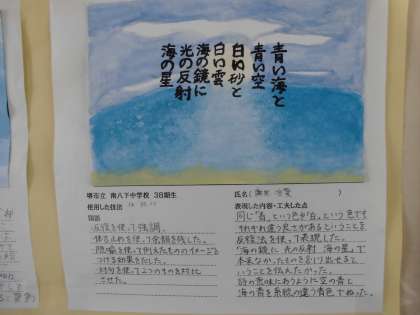 青い海と
青い空
白い砂と
白い雲
海の鏡に
光の反射
海の星
堺市立 南八下中学校 38期生
氏名(
)
使用した技法
国語
反復を使って強調、
体言止めを使って余韻を残した。
隠喩を使って例えたもののイメージを
つける効果をだした。
対句を使って2つのものを対比
させた。
表現した内容・工夫した点
同じ「青」という色や「白」という色でも
それぞれ違う良さがあるということを
反復法を使って表現した。
「海の鏡に 光の反射 海の星」で
本来なかったものを創り出せると
いうことを伝えたかった。
詩の意味にあうように空の青と
海の青を系統の違う青色でぬった。